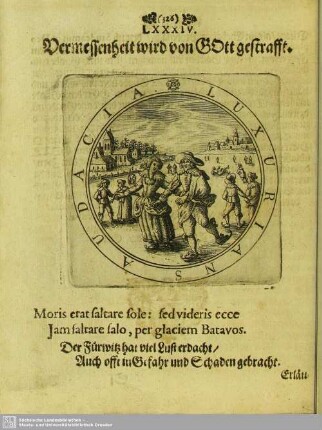 (326)
LXXXIV.
Vermessenheit wird von GOtt gestrafft.
AUDACIA LUXURIANS
Moris erat saltare solo: sed videris ecce
Jam saltare salo, per glaciem Batavos.
Der Fürwitz hat viel Lust erdacht/
Auch offt in Gefahr und Schaden gebracht.
Erläu
Sächsische Landesbibliothek -
Staats- und Universitätsbibliothek Dresden